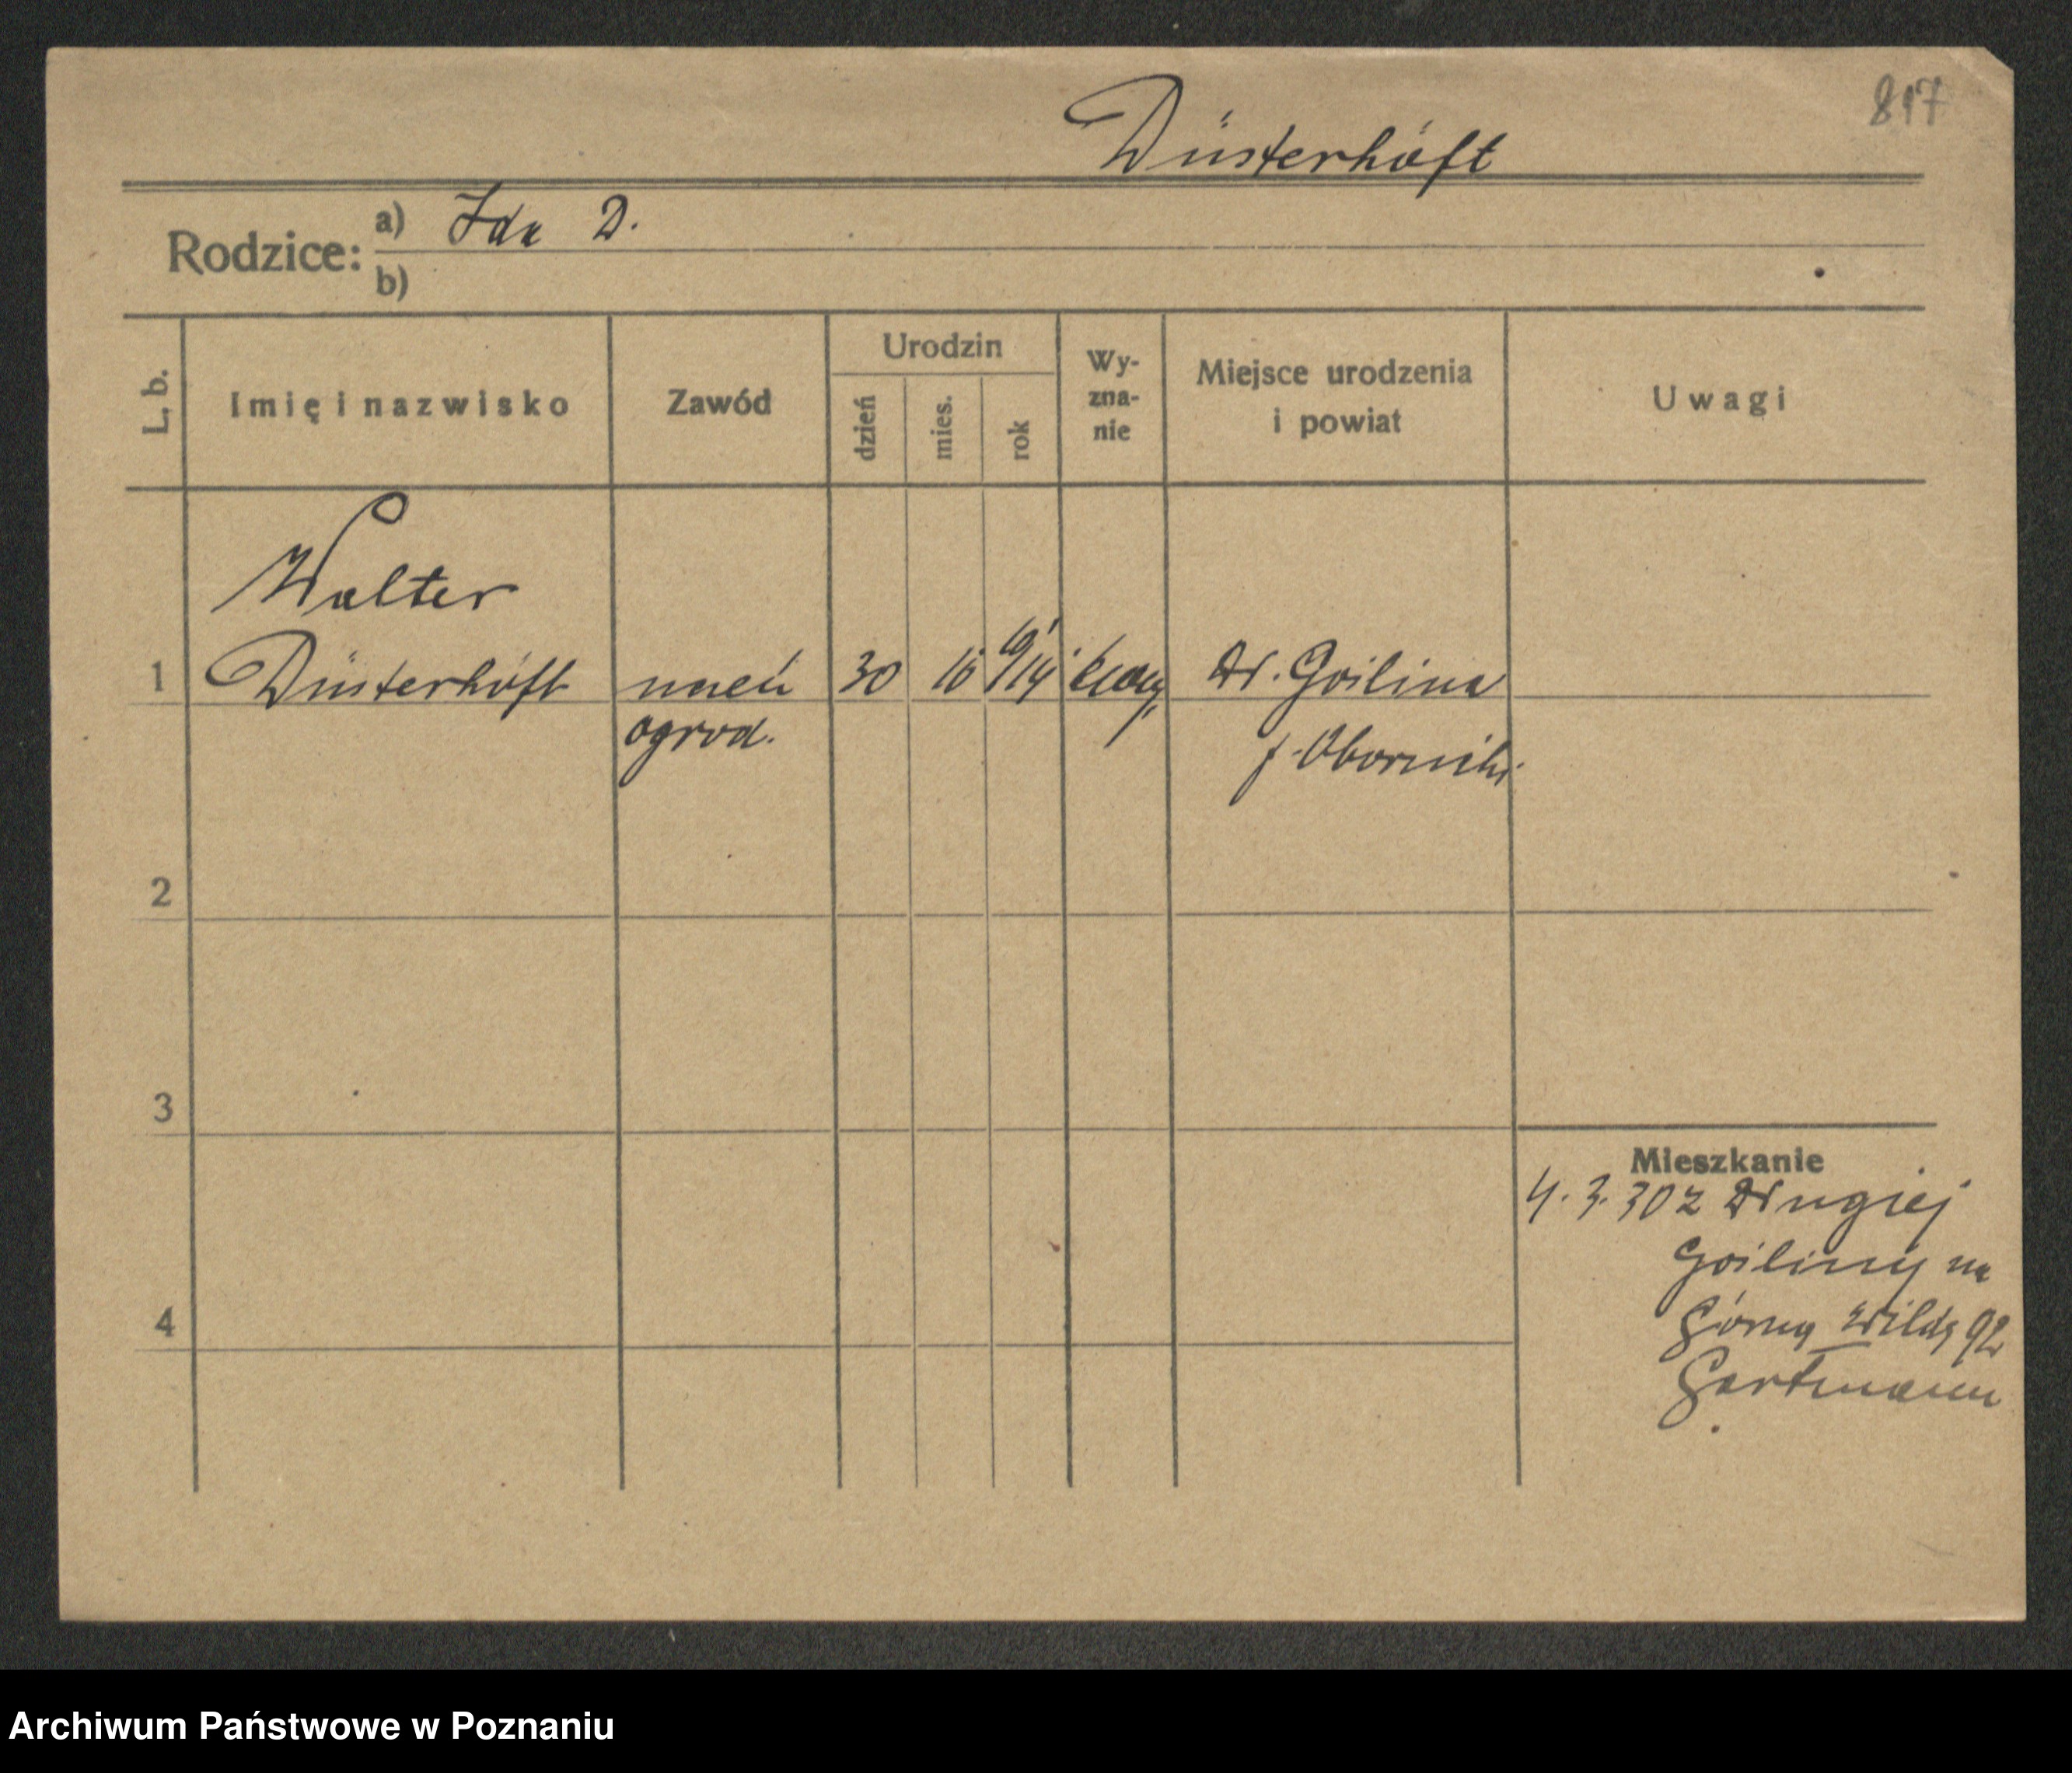 817
Düsterhöft
Rodzice: a) Ida D.
b)
L. b.
Imię i nazwisko
Zawód
Urodzin
dzień
mies.
rok
Wy-
zna-
nie
Miejsce urodzenia
i powiat
Uwagi
Walter
1 Düsterhöft uczeń 30 10 ewang. Dr. Goślina
ogrod. p. Oborniki
2
3
4
Mieszkanie
4. 3. 30 z Długiej
Gośliny na
Górną Wildę 92
Gartmann
Archiwum Państwowe w Poznaniu